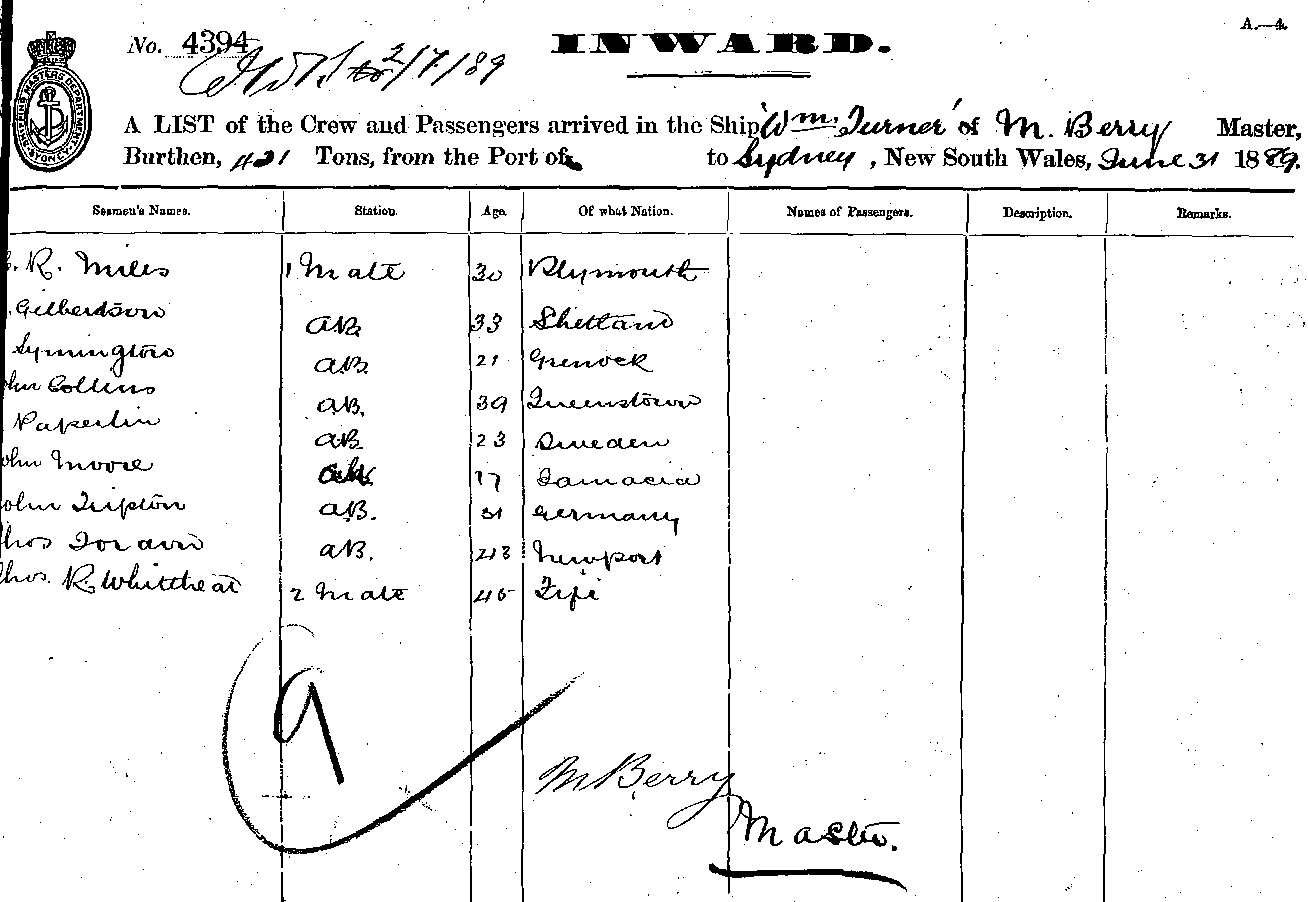 A.—4.
No. 4394
INWARD.
2/7/89
SHIPPING MASTERS DEPARTMENT SYDNEY
A LIST of the Crew and Passengers arrived in the Ship 'Wm. Turner' of M. Berry Master,
Burthen, 421 Tons, from the Port of to Sydney, New South Wales, June 31 1889.
Seamen's Names. Station. Age. Of what Nation. Names of Passengers. Description. Remarks.
R. Miles 1 Mate 30 Plymouth
Gilbertson AB. 33 Shetland
Symington AB. 21 Grenock
ohn Collins AB. 39 Queenstown
AB. 23 Sweden
ohn Moore 17 Jamacia
ohn Tripton AB. 31 Germany
hos AB. Newport
hos. R. Whittheat 2 Mate 45 Fiji
9
M Berry
Master.